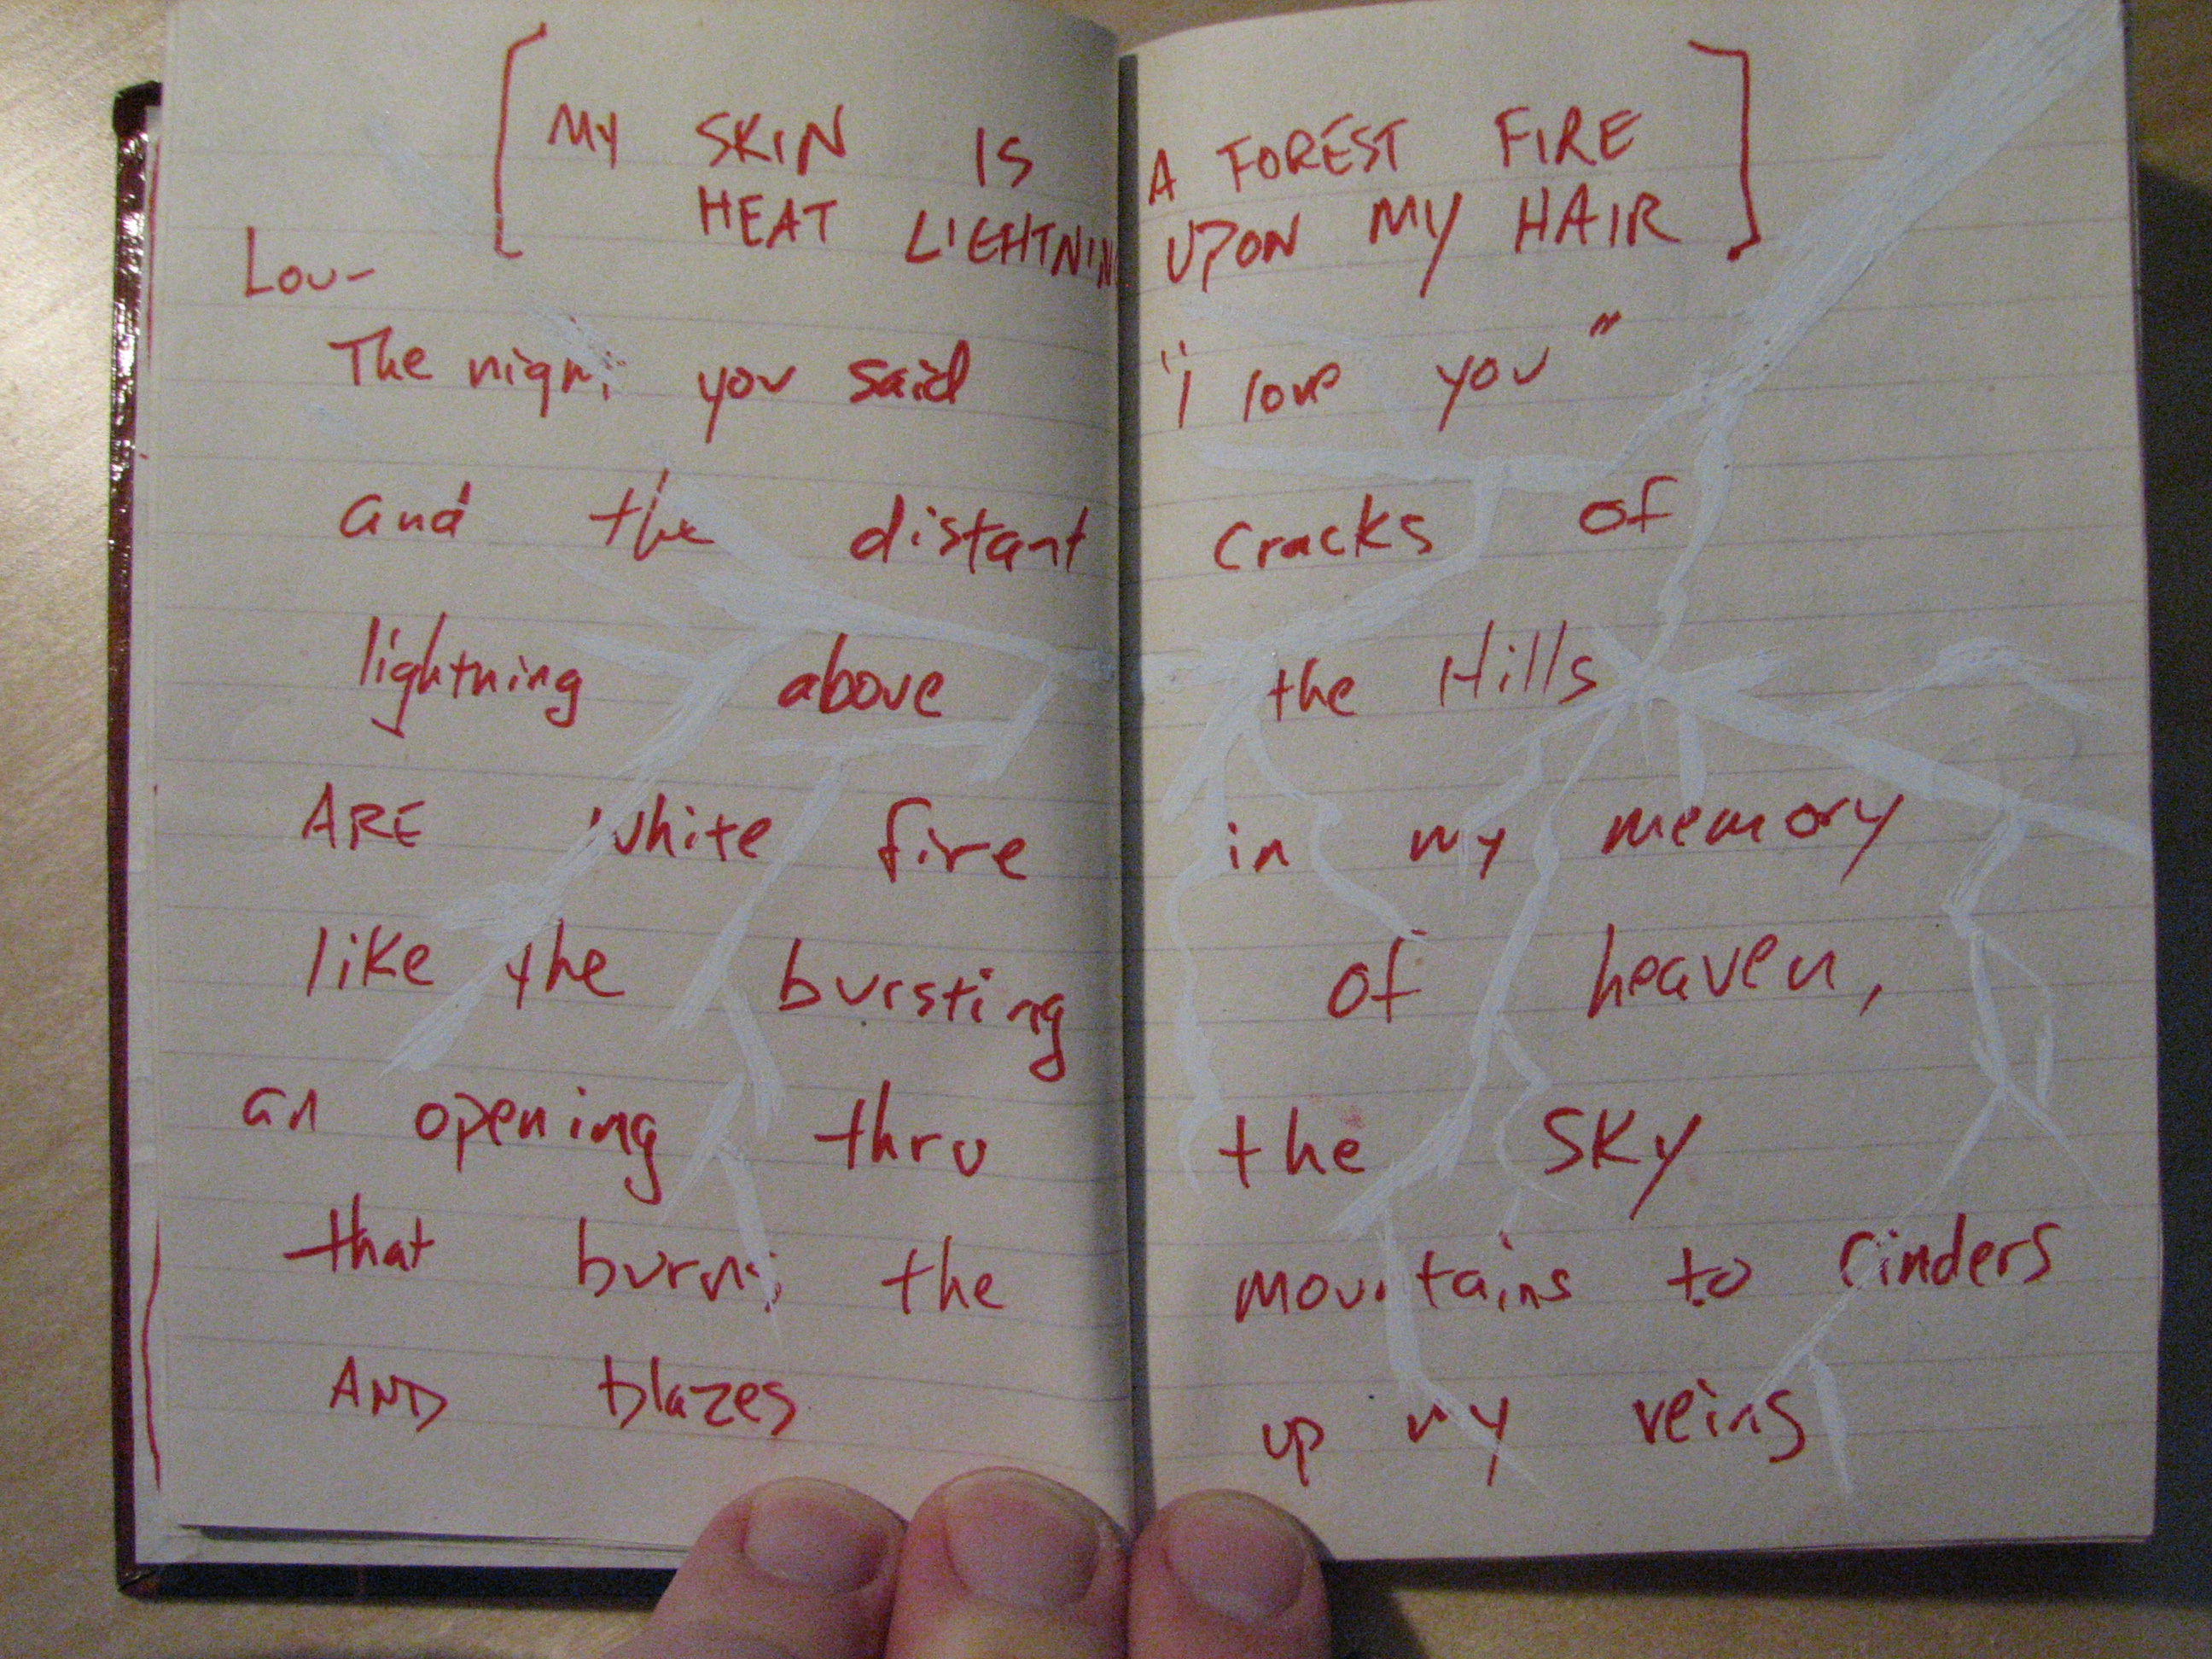 [ MY SKIN IS A FOREST FIRE
HEAT LIGHTNIN UPON MY HAIR ]
Lou-
The night you said "i love you"
and the distant cracks of
lightning above the Hills
ARE white fire in my memory
like the bursting of heaven,
an opening thru the SKY
that burns the mountains to cinders
AND blazes up my veins